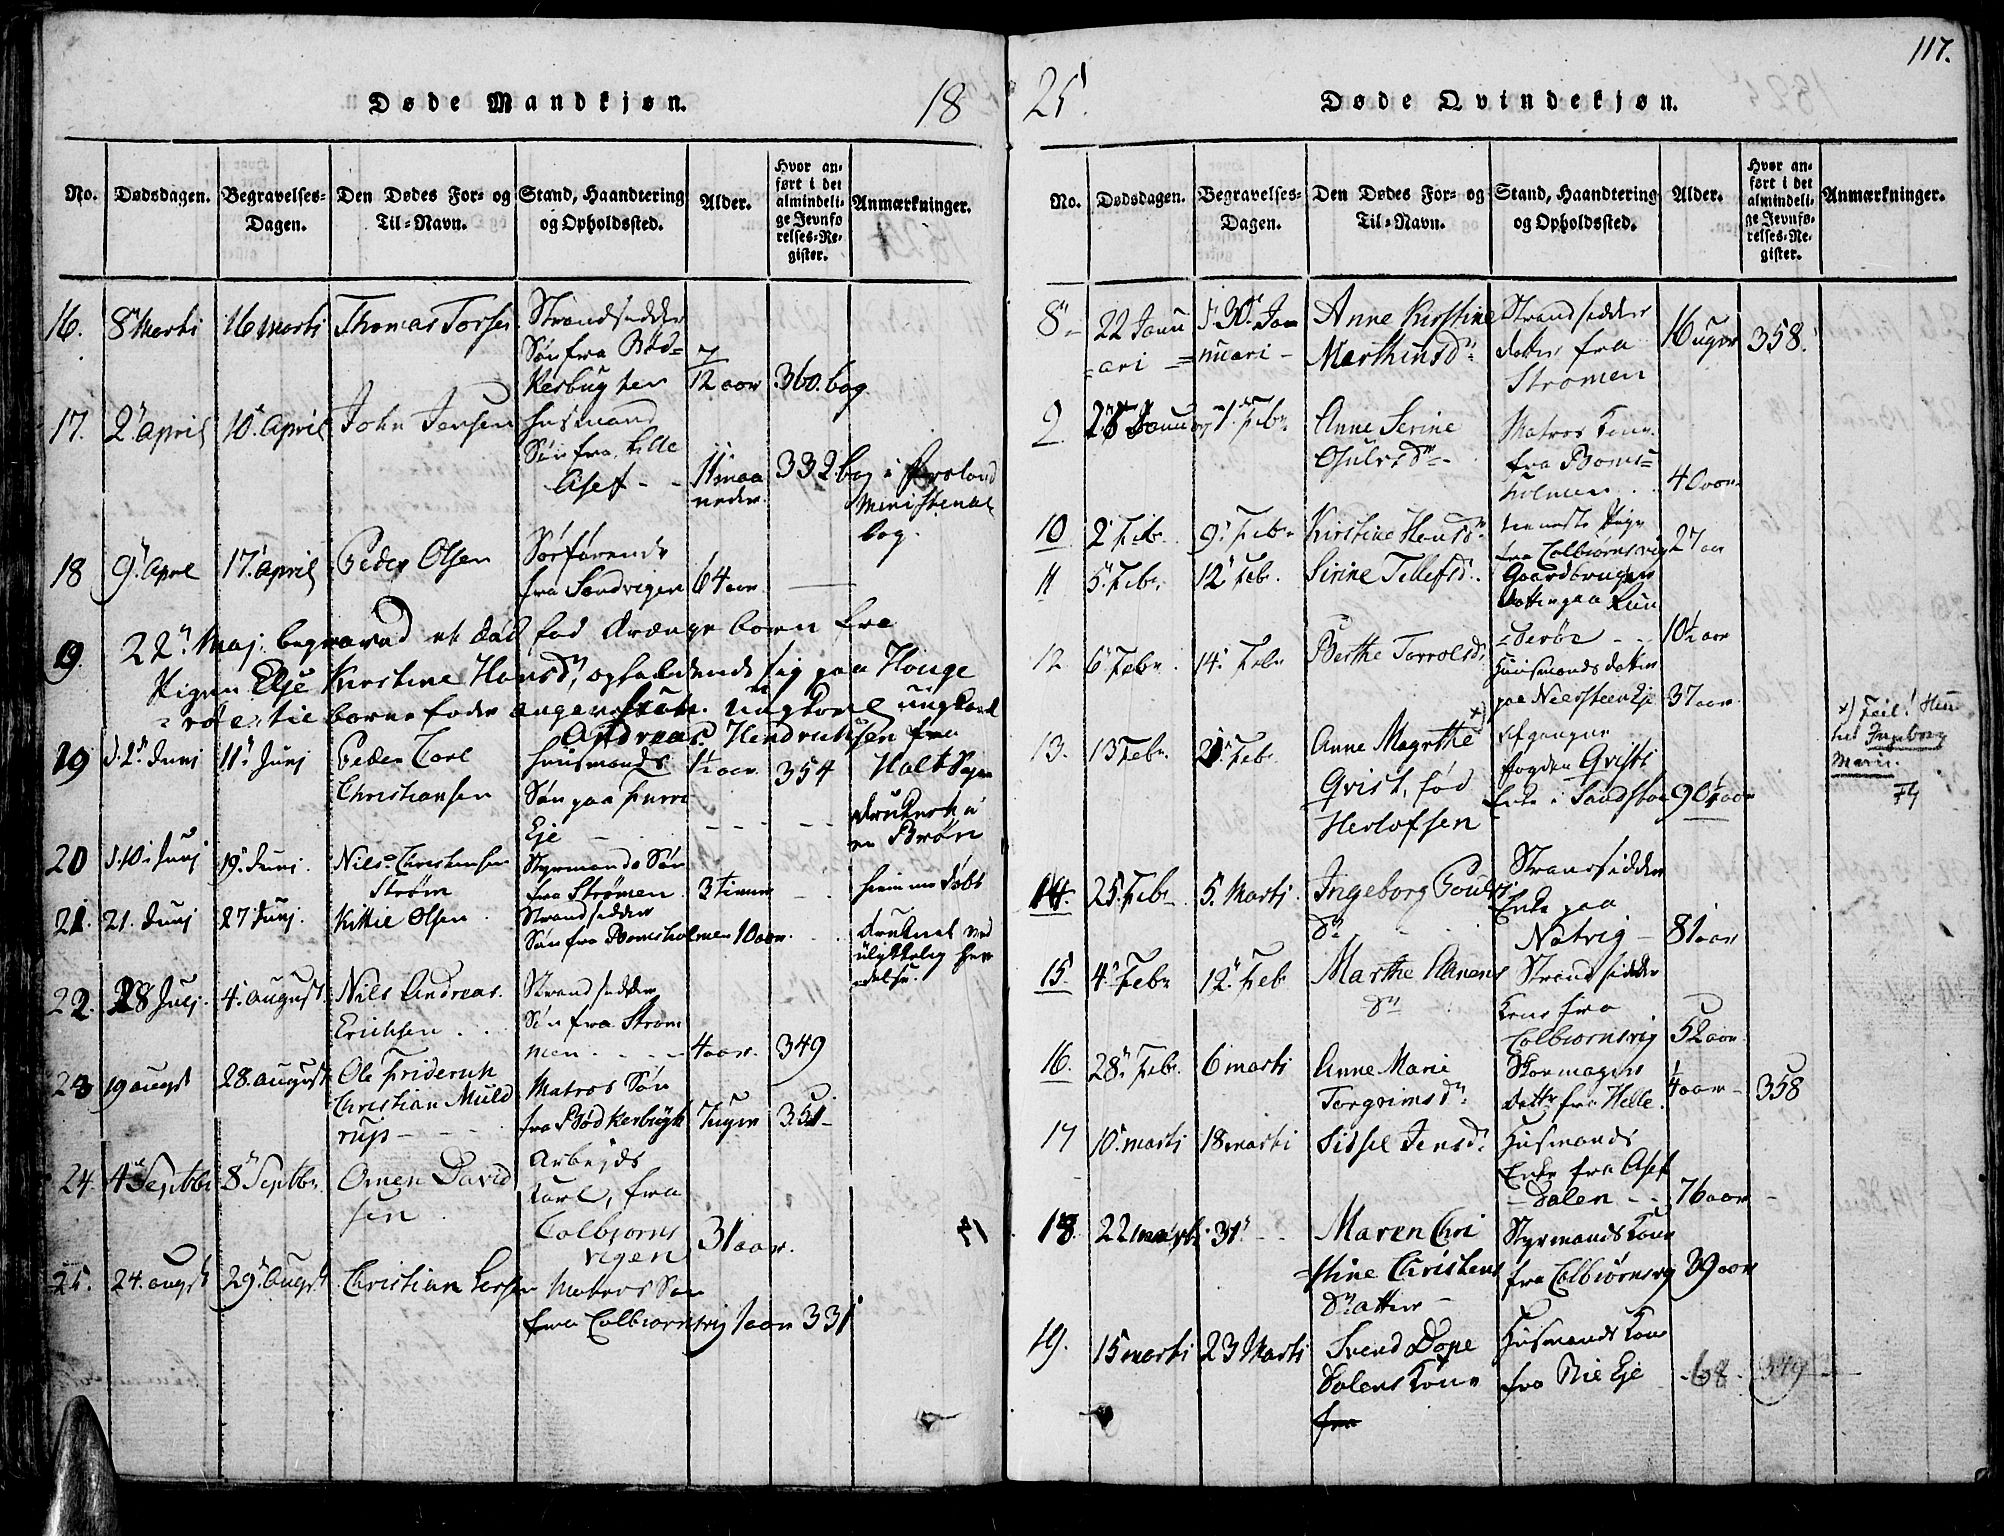 117.
Døde Mandkjøn.
18
No.
Dødsdagen.
Begravelses-
Dagen.
Den Dødes For- og
Til-Navn.
Stand, Haandtering
og Opholdssted.
Alder.
Hvor an-
ført i det
almindeli-
ge Jevnfø
relses-Re-
gister.
Anmærkninger.
16. 8 Marti 16 Marti Thomas Torsen Strandsidder
Søn fra Bød-
kerbugten 7/12 aar 360. bog
17. 2 April 10. April John Jensen Husmand
Søn fra Lille
Asef - - 11 maa
neder 332. bog i Froland
Ministerial
bog.
18 9. Aprl 17. April Peder Olsen Søefarende
fra Sandvigen 64 aar
19. 22 Maj begraved et død fød Drænge barn fra
Pigen Else Kirstine Hansd, opholdende sig paa Houge
til barne fader angeven ungkarl
Andreas Hendrichsen fra
Holt Sogn
19 d. 2 Junj 11 Junj Peder Carl
Christiansen Husmands
Søn paa
Eje 1½ aar 354
druknet i
en Brøn
20 d. 10 Junj 19. Junj. Nils Christensen
Strøm Styrmands Søn
fra Strømen 3 timer
hiemme døbt
21. 21. Junj 27 Junj. Kittil Olsen Strandsidder
Søn fra Bomsholmen 10 aar
druknet ved
ulykkelig hen
delse.
22. 28 Julj. 4. August Nils Andreas
Erichsen Strandsidder
Søn fra Strøm
men 4 aar. 349
23 19 Augst 28. August Ole Friderich
Christian Muld
rup Matros Søn
fra Bødkerbugt 7 uger 351
24. 4 Septbr 8 Septbr. Omen David
sen Arbejds
karl, fra
Colbjørns
vigen 31 aar.
25. 24. Augst 29. Augst Christian Larsen Matros Søn
fra Colbiørnsvig 1 aar 331
25.
Døde Qvindekjøn.
No.
Dødsdagen.
Begravelses-
Dagen.
Den Dødes For- og
Til-Navn.
Stand, Haandtering
og Opholdssted.
Alder.
Hvor an-
ført i det
almindeli-
ge Jevnfø-
relses-Re-
gister.
Anmærkninger.
8 22 Janu
ari d 30 Jan
nuari Anne Kirstine
Marthinsd Strandsidder
datter fra
Strømen 16 uger 358.
9 26 Januar 1. Febr Anne Serine
Gulisd Matros Kone
fra Boms-
holmen 40 aar
10 2 Febr. 9. Febr Kirstine Hansd tieneste Pige
fra Colbiørnsvig 27 aar
11 5. Febr. 12. Febr. Sirine Tellefsd. Gaardbruger
datter paa Lun
derøe 10½ aar
12 6 Febr. 14. Febr Berthe Tarrolsd Huusmands datter
paa Niersteen Eje 37 aar
13. 13 Febr. 21. Febr. Anne Magrthe x)
Qvist, fød
Herlofsen Afgangne
fogden Qvists
Enke i Sandstøe 90½ aar
x) Feil! Hun
hed Ingeborg
Marie.
14. 25. Febr 5. Marti Ingeborg Pouls
Dr Strandsidder
Enke paa
Natvig 81 aar
15. 4. Febr 12. Feb Marthe Clemens
Dr Strandsidder
Kone fra
Colbiørnsvig 52 aar
16. 28. Febr. 6 marti Anne Marie
Tergrimsd Skomager
dattr fra Helle. ¼ aar 358
17 10. marti 18 marti Sissel Jensd. Husmands
Enke fra Asef
Dalen 76 aar
18. 22 marti 31 Maren Chri
stine Christens
Datter Styrmands Kone
fra Colbiørnsvig 39 aar
19. 15 marti 23 Marti Svend Dope
Dalens Kone
fra Husmands Kone
fra Rie Eje 68 349